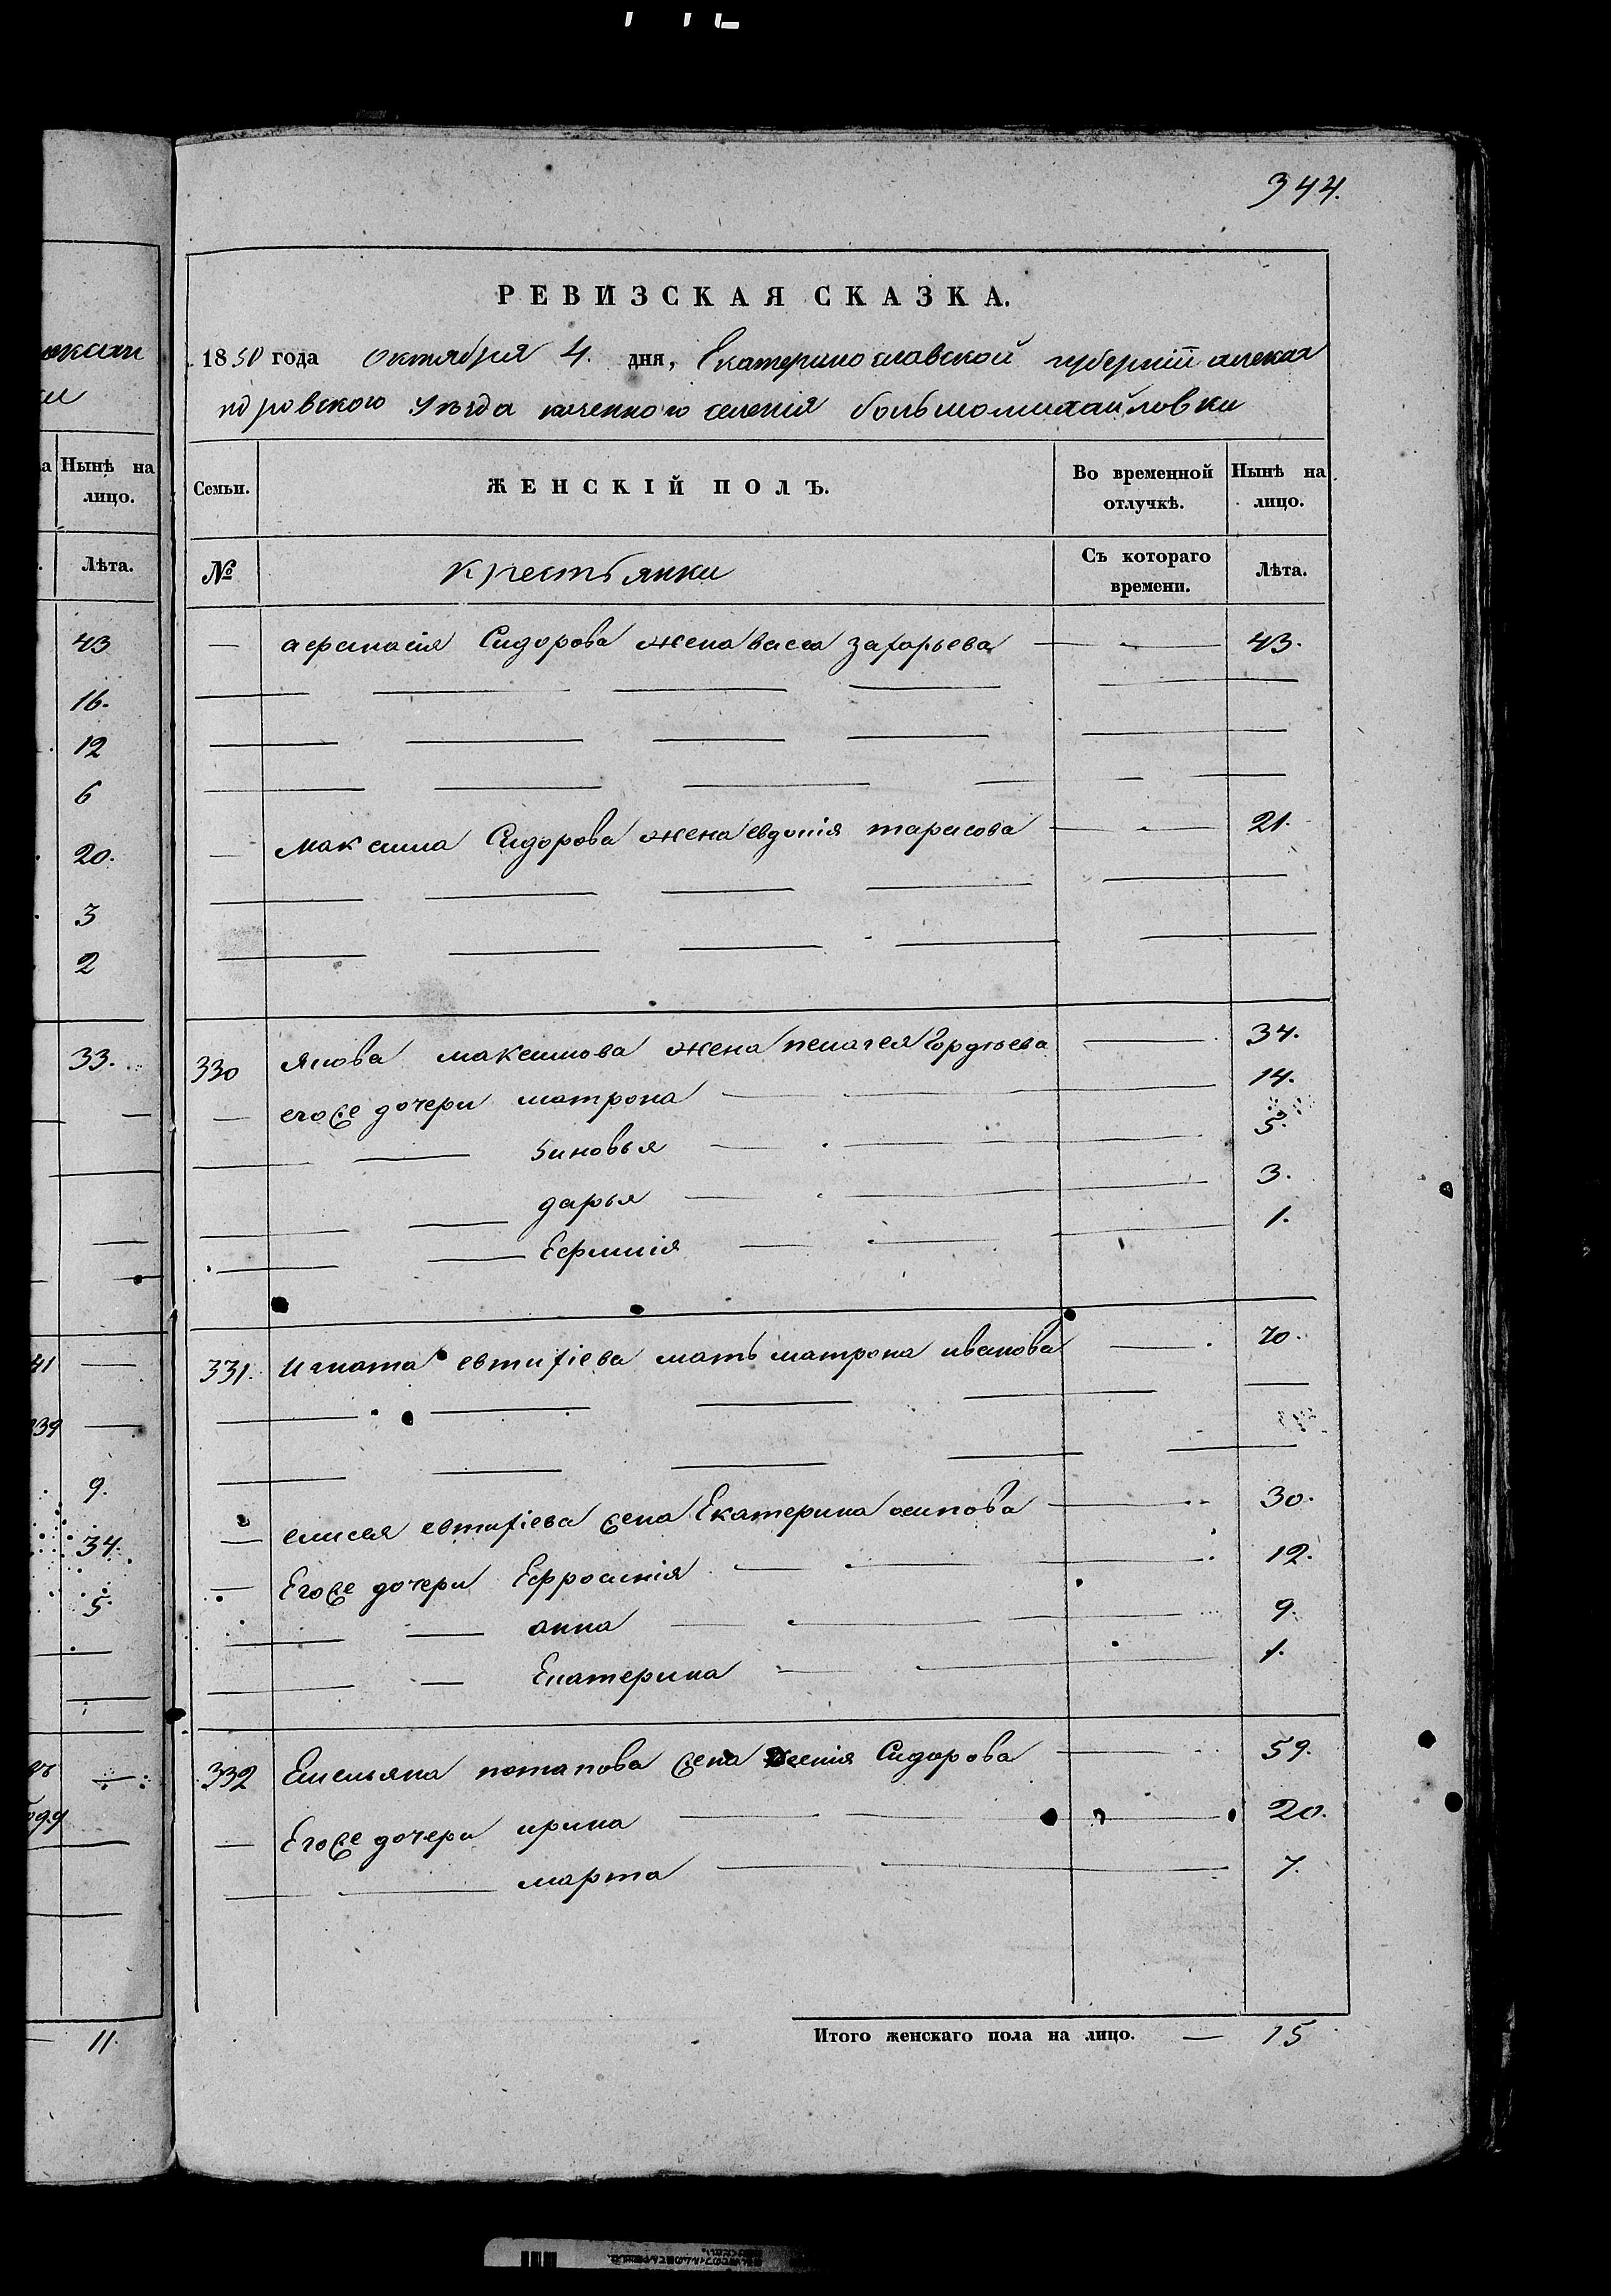 344.
РЕВИЗСКАЯ СКАЗКА.
1850 года октября 4. дня, Екатеринославской губерніи алекса
ндровского уѣзда казенного селенія большомихайловки
Семьи. ЖЕНСКІЙ ПОЛЪ. Во временной отлучкѣ. Нынѣ на лицо.
№ крестьянки Съ котораго времени. Лѣта.
— афанасія Сидорова жена васса захарьева — 43.
— максима Сидорова жена евдокія тарасова — 21.
330 якова максимова жена пелагея Гордѣева — 34.
— егоже дочери матрона — 14.
— зиновья — 5.
— дарья — 3.
— Ефимія — 1.
331. игната евтихіева мать матрона иванова — 70.
— елисея евтихіева жена Екатерина осипова — 30.
— Егоже дочери Ефросинія — 12.
— анна — 9.
— Екатерина — 1.
332 Емельяна потапова жена Ксенія Сидорова — 59.
— Егоже дочери ирина — 20.
— марта — 7.
Итого женскаго пола на лицо. — 15
Нынѣ на
лицо.
Лѣта.
43
16.
12
6
20.
3
2
33.
41
39
9.
34.
5.
11.